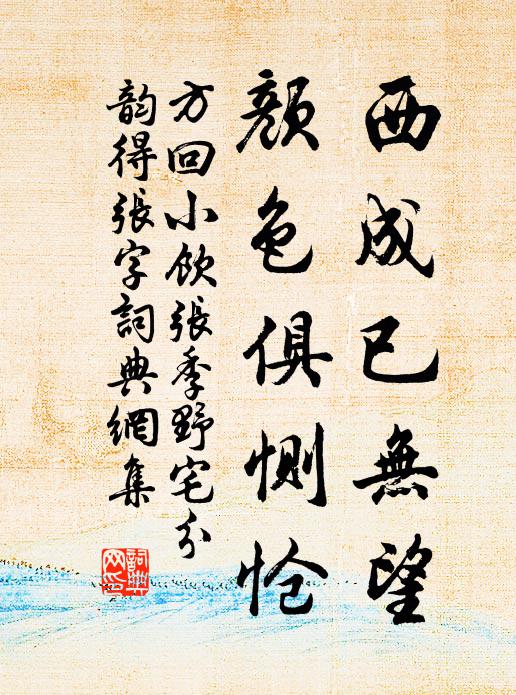 西成已無望
顏色俱惻愴
方回小飲張季野宅分
韵得張字詞典網集